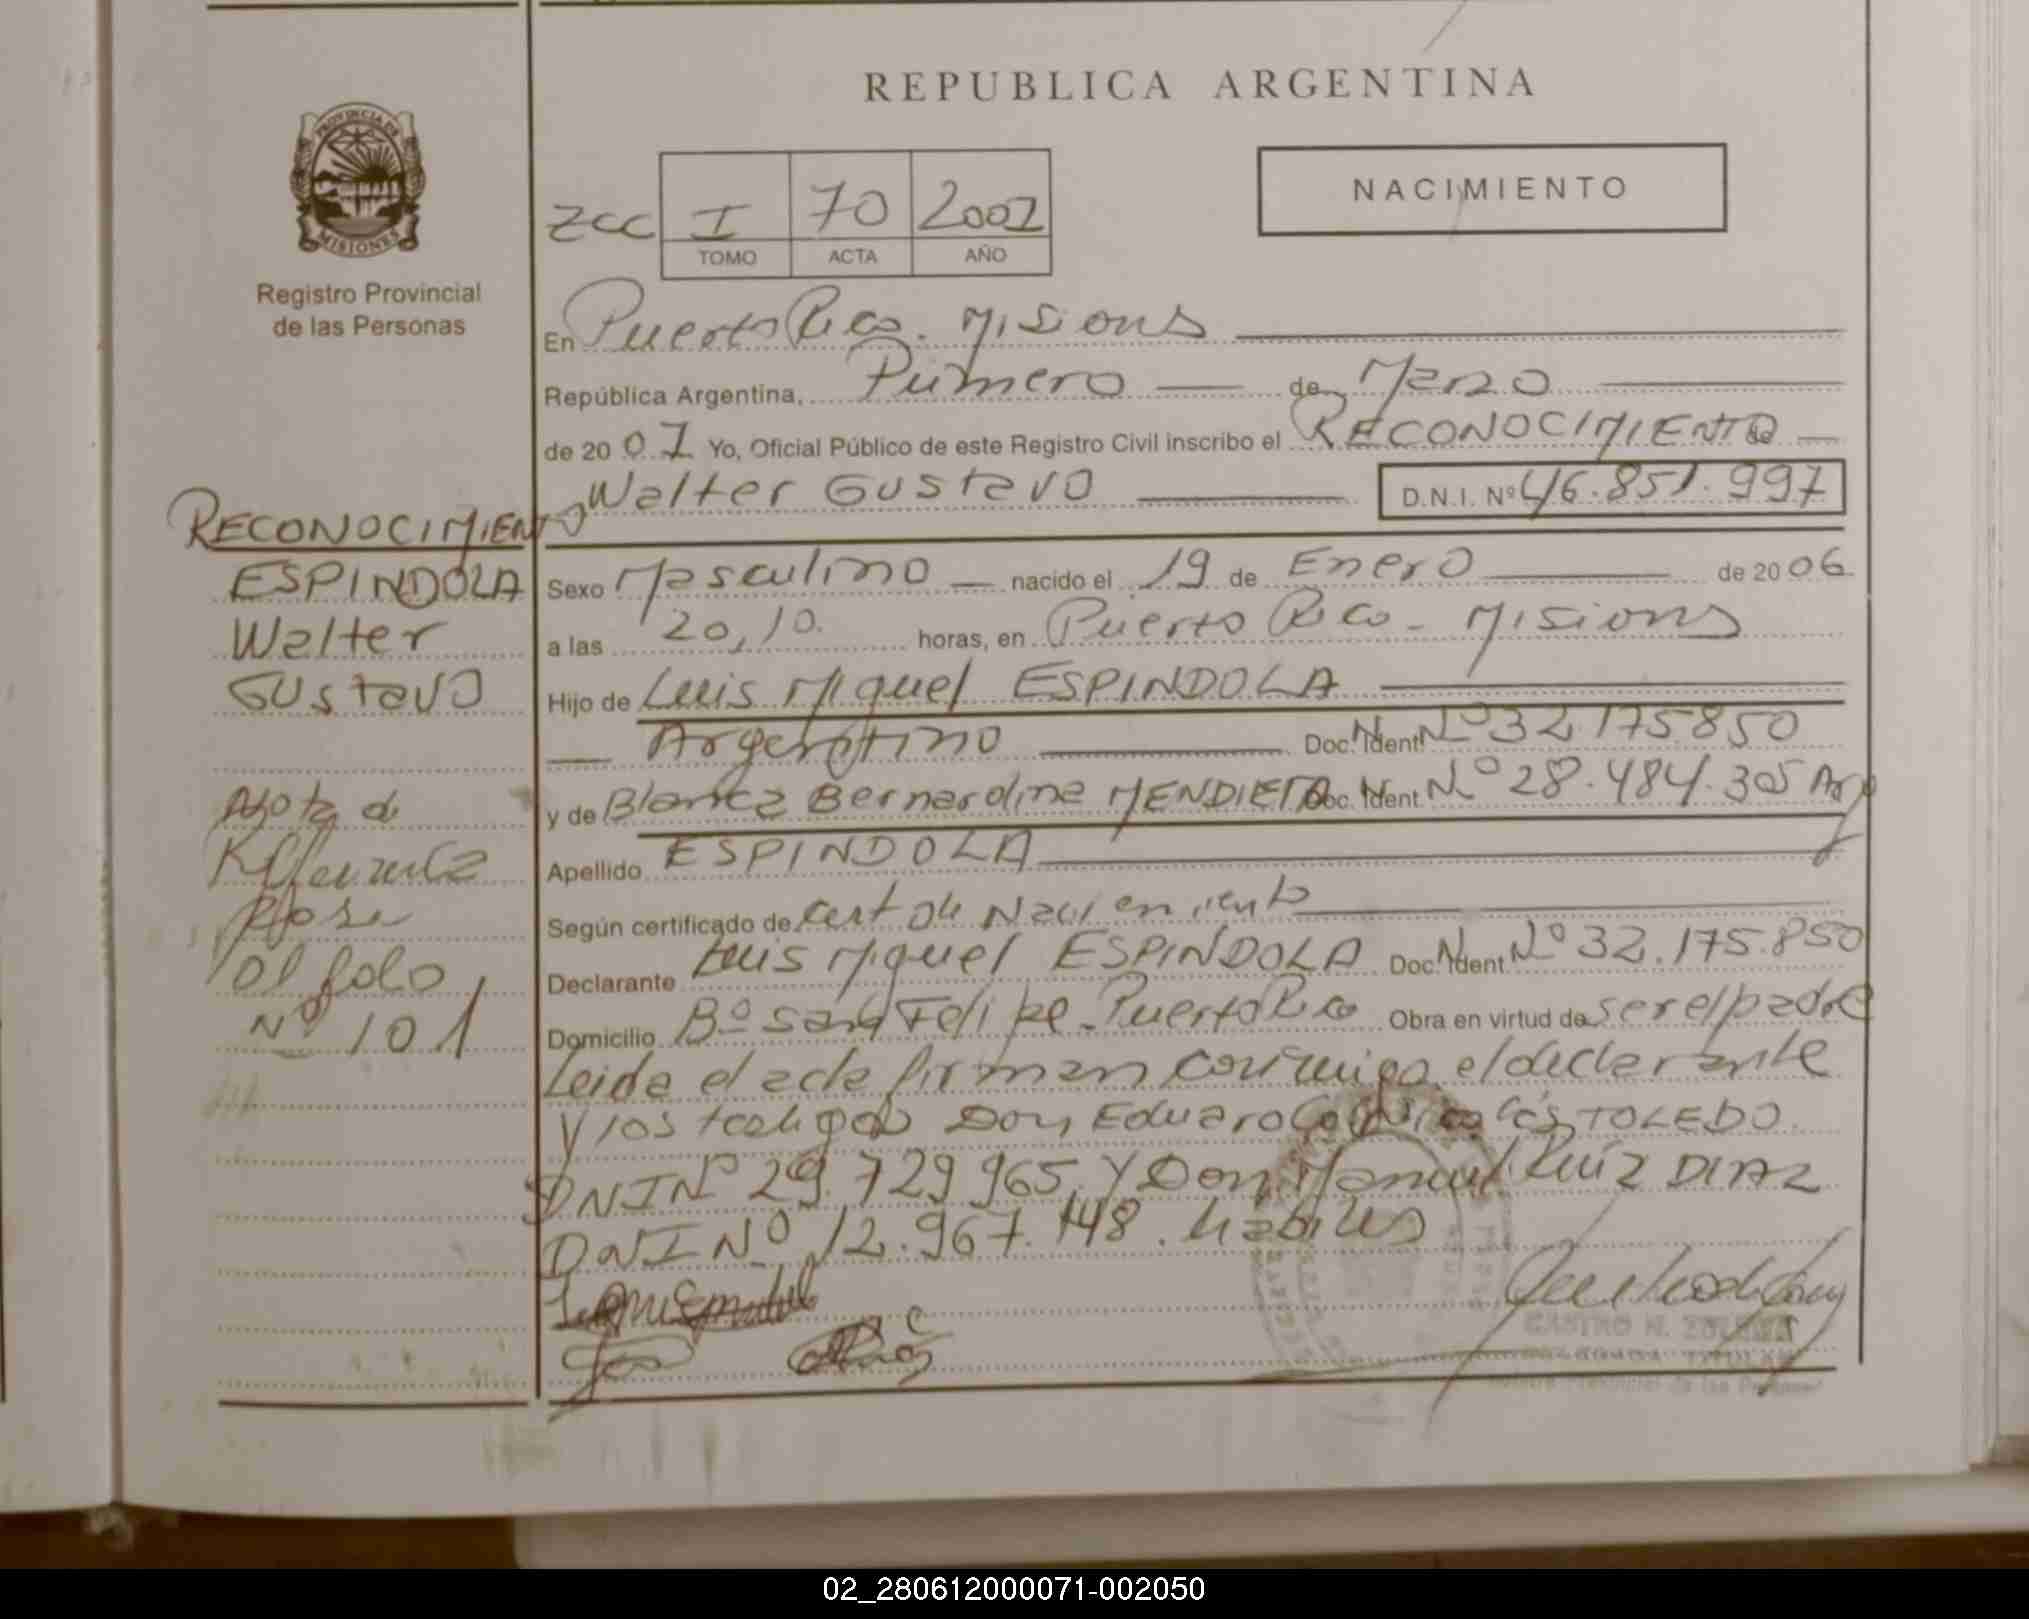 REPUBLICA ARGENTINA
PROVINCIA DE
MISIONES
Registro Provincial
de las Personas
NACIMIENTO
ZCC I 70 2007
TOMO ACTA AÑO
En Puerto Rico. Misiones
República Argentina, Primero de Marzo
de 20 07 Yo, Oficial Público de este Registro Civil inscribo el RECONOCIMIENTO
Walter Gustavo D.N.I. Nº 46.851.997
RECONOCIMIENTO
ESPINDOLA
Walter
Gustavo
Sexo Masculino nacido el 19 de Enero de 20 06
a las 20,10. horas, en Puerto Rico - Misiones
Hijo de Luis Miguel ESPINDOLA
Argentino Doc. Ident. Nº 32 175850
y de Blanca Bernardina MENDIETA Doc. Ident. Nº 28.484.305 Arg
Apellido ESPINDOLA
Según certificado de Cert de Nacimiento
Declarante Luis Miguel ESPINDOLA Doc. Ident. Nº 32.175.850
Domicilio Bº San Felipe - Puerto Rico Obra en virtud de ser el padre
Nota de
Referencia
Al folio
Nº 101
Leida el acta firman conmigo el declarante
y los testigos Don Eduardo TOLEDO
DNI Nº 29.729 965. Y Don Manuel Ruiz DIAZ
DNI Nº 12.967.148. habiles
CASTRO N.
02_280612000071-002050